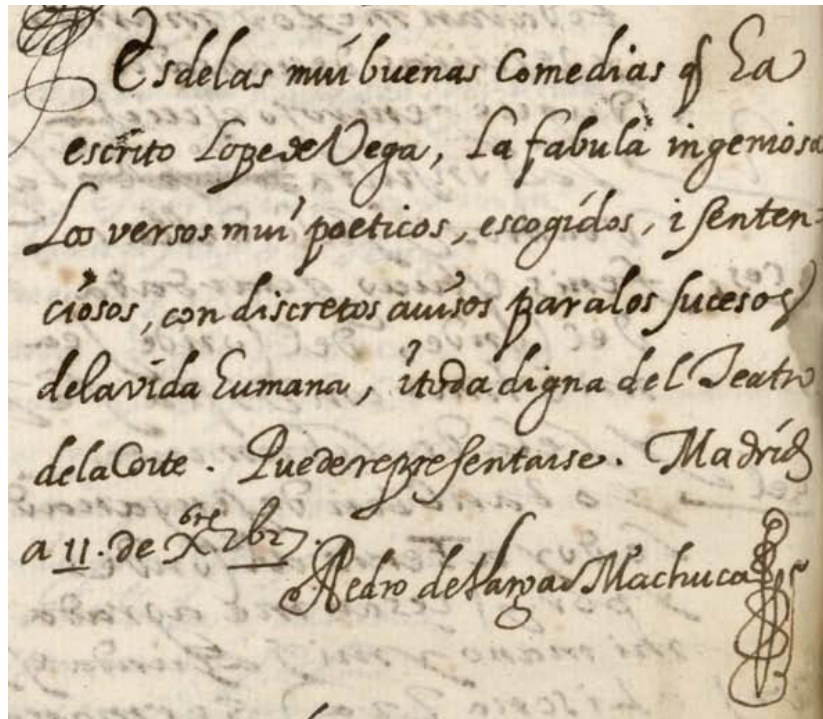 Es delas mui buenas Comedias q̃ ha
escrito Lope de Vega, La fabula ingeniosa
Los versos mui poeticos, escogidos, i senten-
ciosos, con discretos auisos para los sucesos
dela vida humana, i toda digna del Teatro
dela Corte. Puede representarse. Madrid
a 11. de Xbre
Pedro de Vargas Machuca